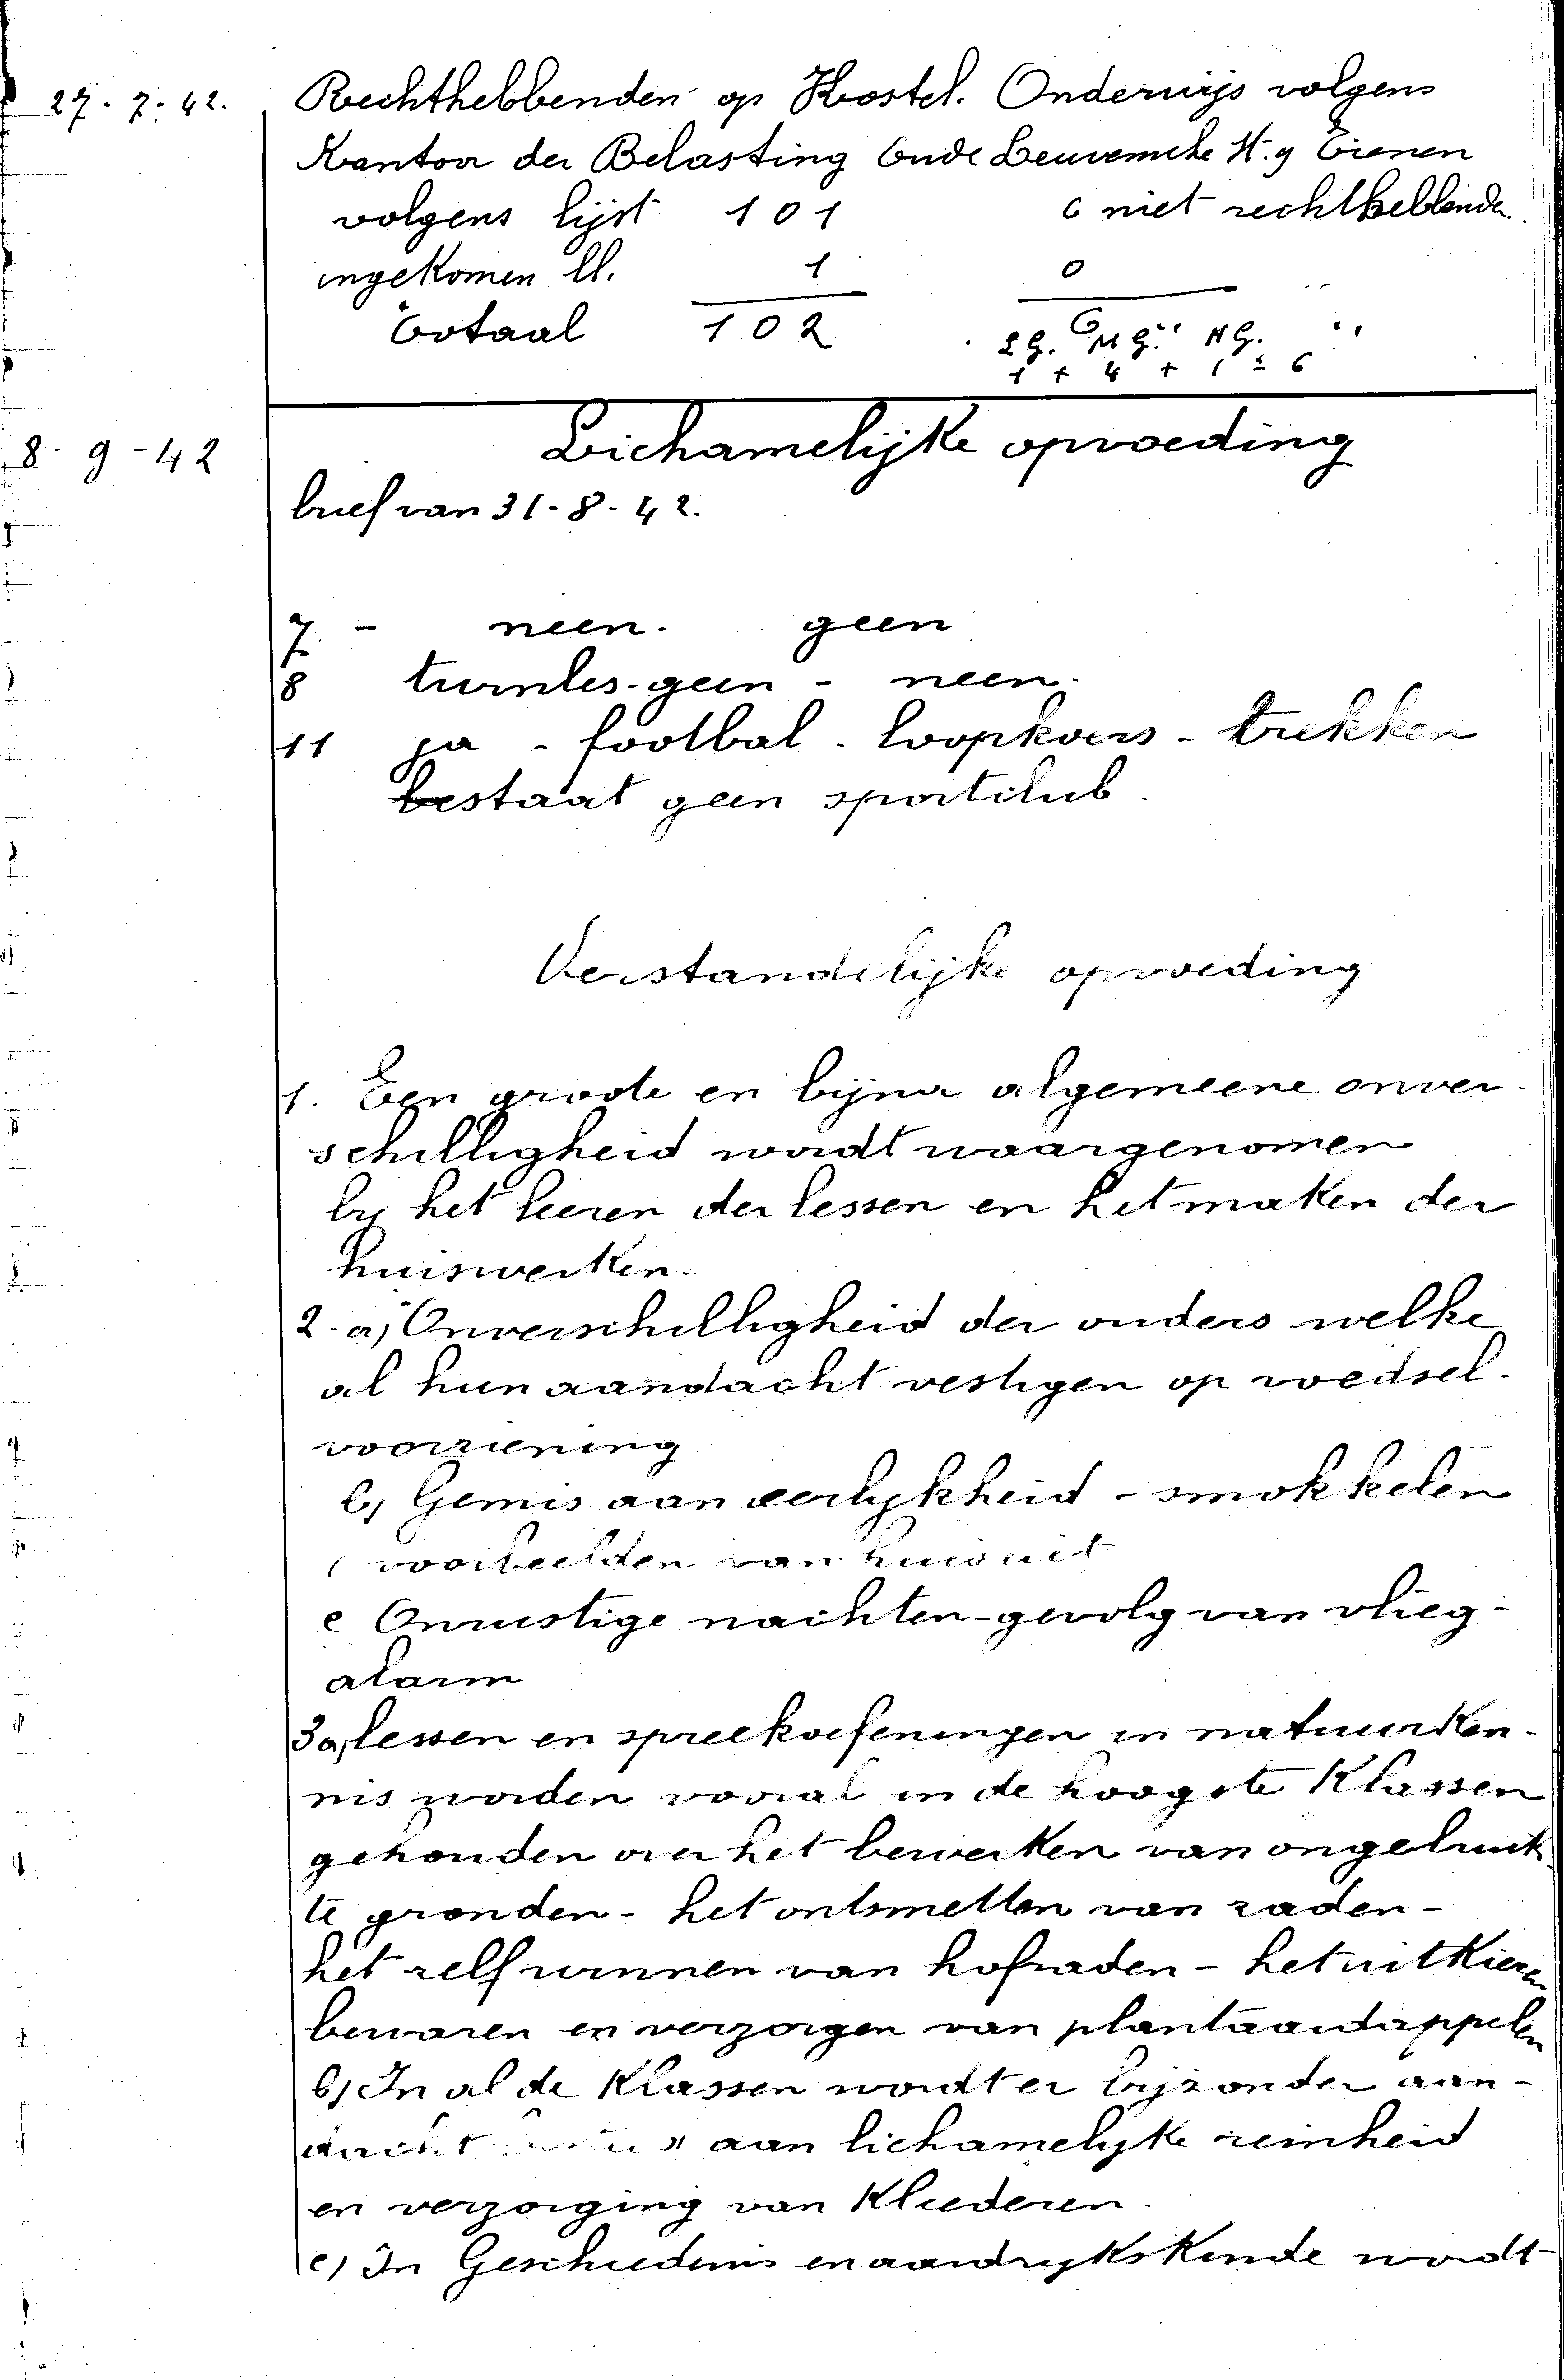 27-7-42. Rechthebbenden op Kostel. Onderwijs volgens
Kantoor der Belasting Oude Leuvensche St. 9 Tienen
volgens lijst 101 6 niet rechthebbenden
ingekomen ll. 1 0
Totaal 102 6
L.G. M.G. H.G.
1 + 4 + 1 = 6
8-9-42 Lichamelijke opvoeding
brief van 31-8-42.
7. - neen. geen
8 turnles-geen - neen.
11 ja - footbal - loopkoers - trekken
bestaat geen sportclub.
Verstandelijke opvoeding
1. Een groote en bijna algemeene onver-
schilligheid wordt waargenomen
bij het leeren der lessen en het maken der
huiswerken.
2. a) Onverschilligheid der ouders welke
al hun aandacht vestigen op voedsel-
voorziening
b) Gemis aan eerlijkheid - smokkelen
( voorbeelden van huis uit
c Onrustige nachten-gevolg van vlieg-
alarm
3a) lessen en spreekoefeningen in natuurken-
nis worden vooral in de hoogste Klassen
gehouden over het bewerken van ongebruik-
te gronden - het ontsmetten van zaden -
het zelf winnen van hofzaden - het uitkiezen
bewaren en verzorgen van plantaardappelen
b) In al de Klassen wordt er bijzonder aan-
dacht aan lichamelijke reinheid
en verzorging van Kleederen.
c) In Geschiedenis en aardrijkskunde wordt